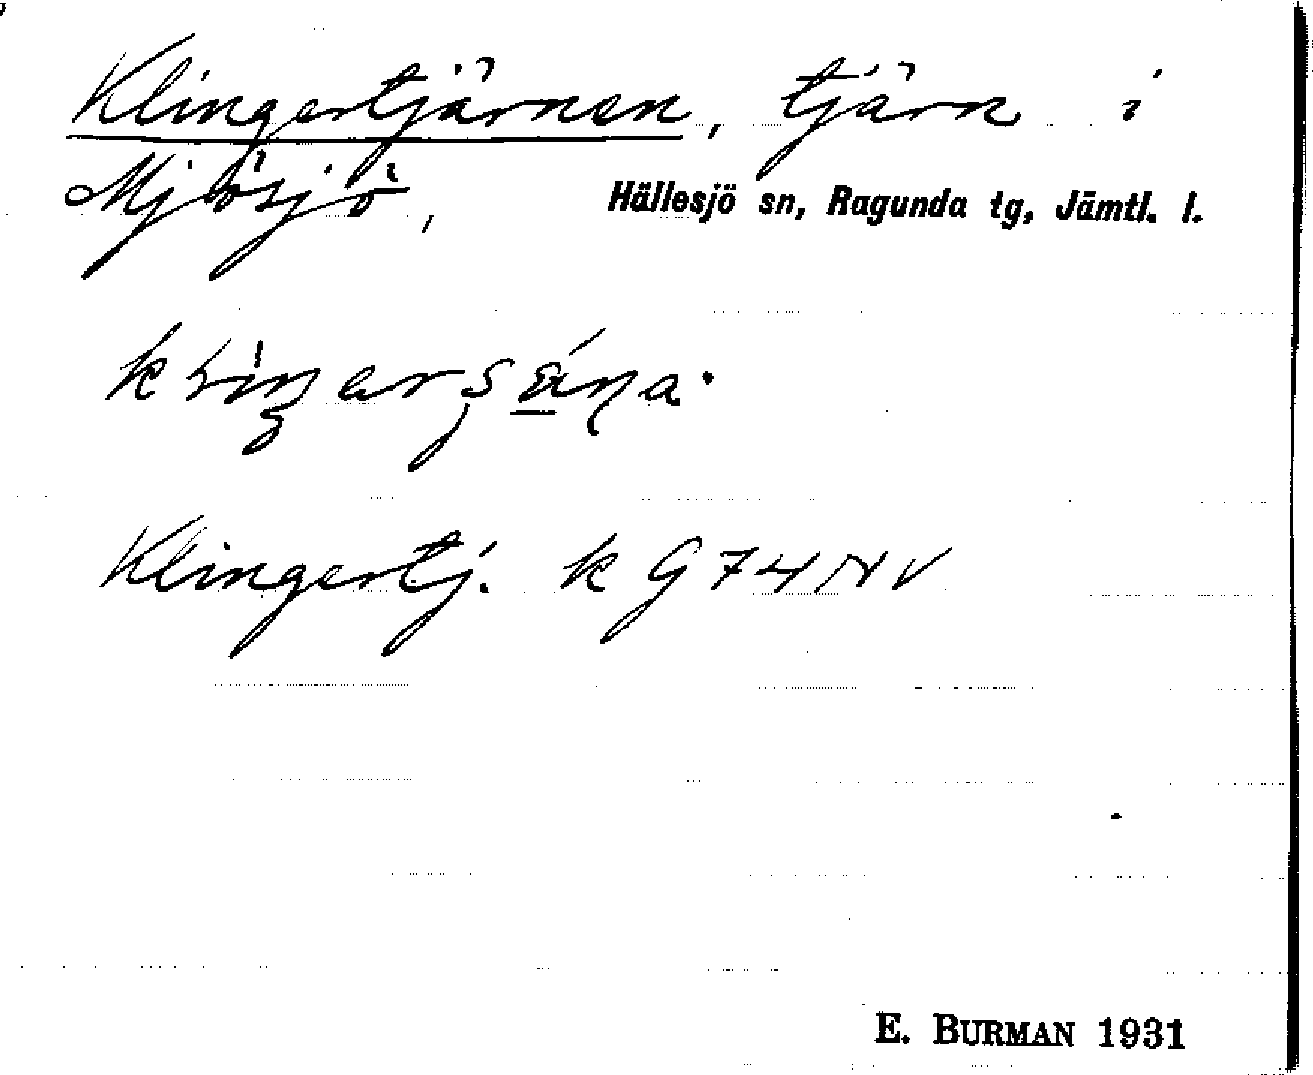 Klingertjärnen, tjärn i
Mjösjö, Hällesjö sn, Ragunda tg, Jämtl. l.
Klingertj. k G 74 NV
E. BURMAN 1931